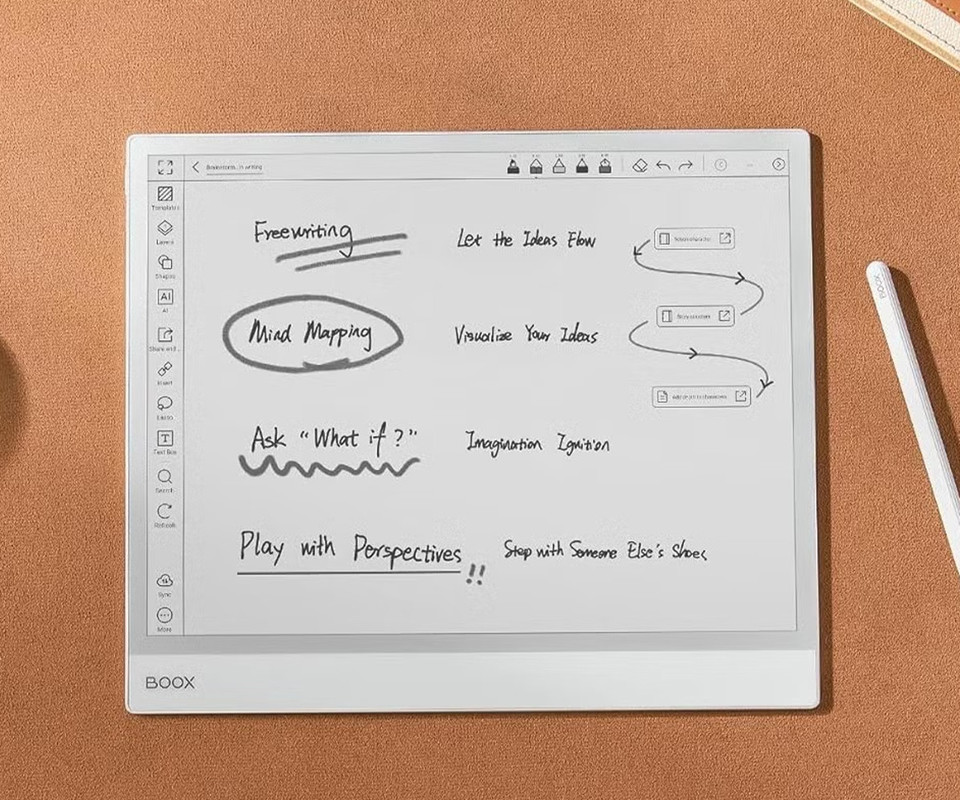 Brainstorm...in writing
Templates
Layers
Shapes
AI
AI
Share and...
Insert
Lasso
Text Box
Search
Refresh
Sync
More
Freewriting
Let the Ideas Flow
Mind Mapping
Visualize Your Ideas
Ask "What if?"
Imagination Ignition
Play with Perspectives!!
Step with Someone Else's Shoes
BOOX
BOOX